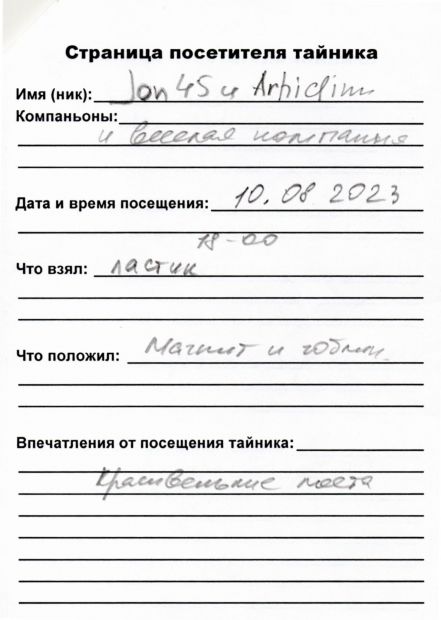 Страница посетителя тайника
Имя (ник): Jon 45 и Arpidim
Компаньоны:
и веселая компания
Дата и время посещения: 10.08 2023
18-00
Что взял: ластик
Что положил: Магнит и
Впечатления от посещения тайника:
Красивенькие места